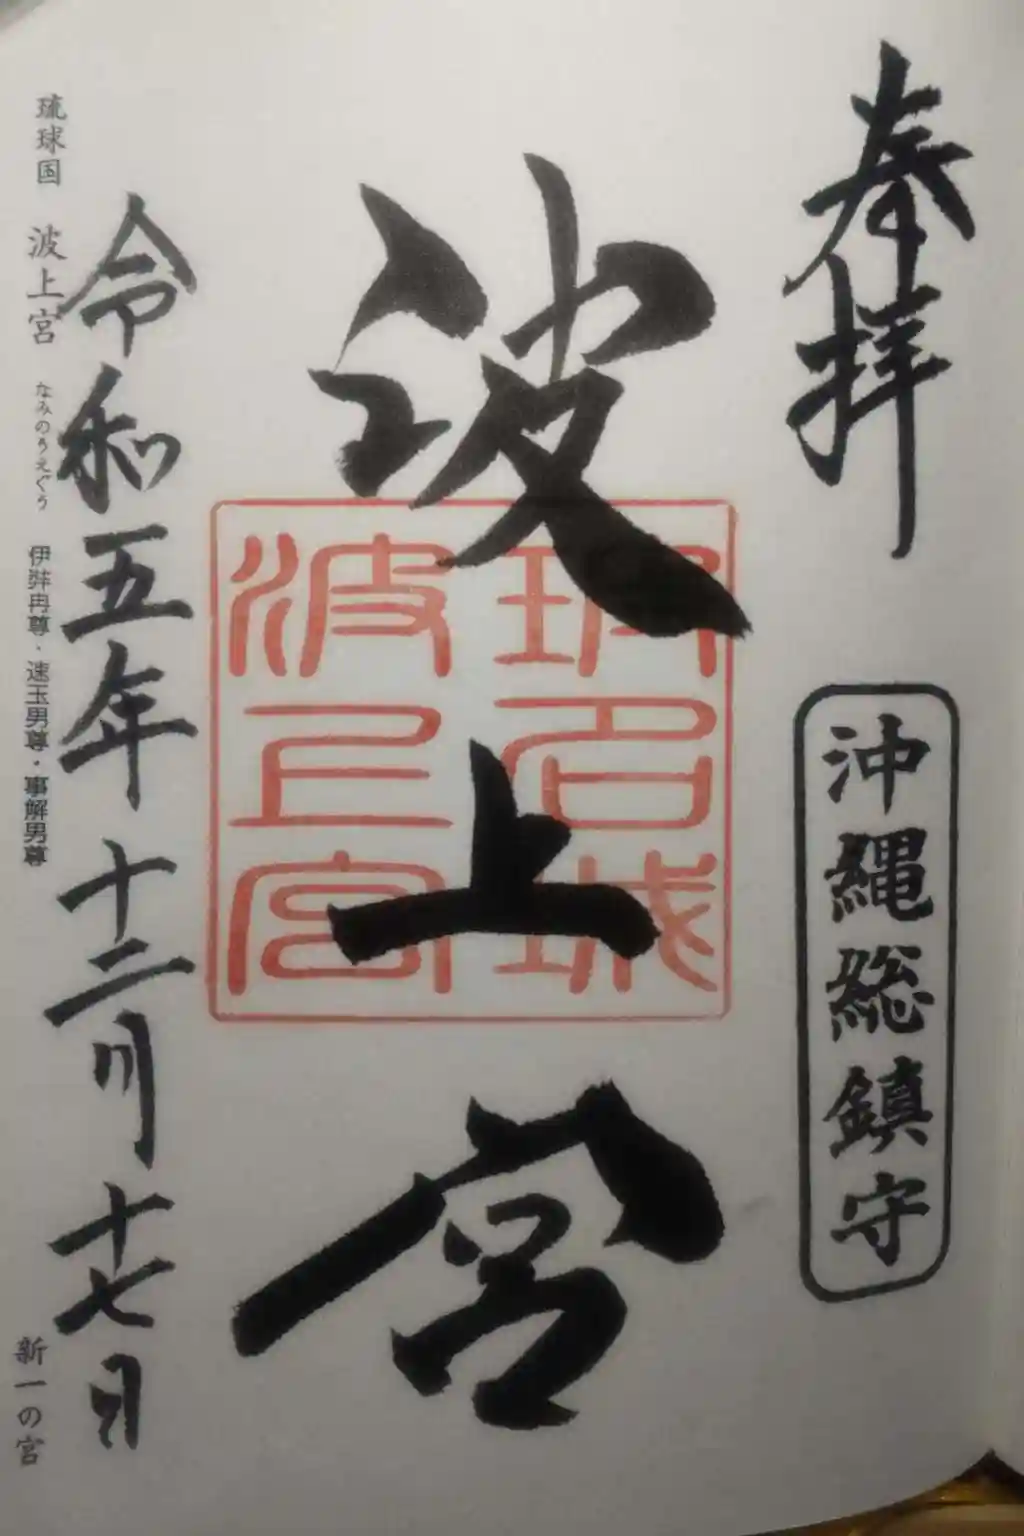 奉拝
沖縄総鎮守
波上宮
波上宮
令和五年十二月十七日
琉球国 波上宮 なみのうえぐう 伊弉冉尊・速玉男尊・事解男尊
新一の宮